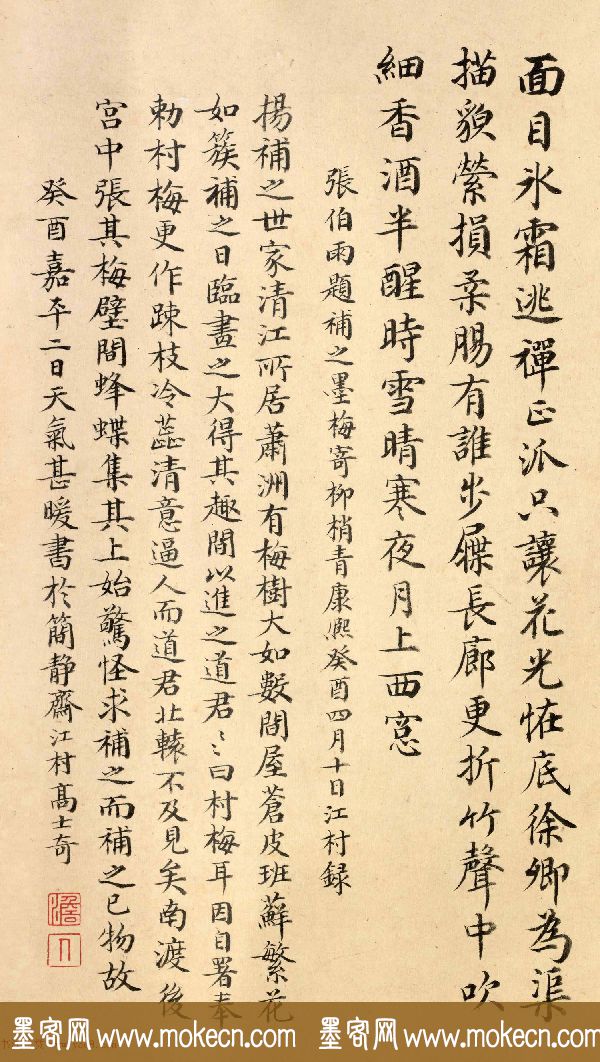 面目氷霜逃禪正派只讓花光恠底徐卿為渠
描貌縈損柔腸有誰步屧長廊更折竹聲中吹
細香酒半醒時雪晴寒夜月上西窓
張伯雨題補之墨梅寄柳梢青康熙癸酉四月十日江村録
揚補之世家清江所居蕭洲有梅樹大如數間屋蒼皮班蘚繁花
如簇補之日臨畫之大得其趣間以進之道君〻曰村梅耳因自署奉
勅村梅更作踈枝冷蕊清意逼人而道君北轅不及見矣南渡後
宫中張其梅壁間蜂蝶集其上始驚怪求補之而補之已物故
癸酉嘉平二日天氣甚暖書於簡静齋江村髙士奇
澹人
墨客网 www.mokecn.com 墨客网 www.mokecn.com